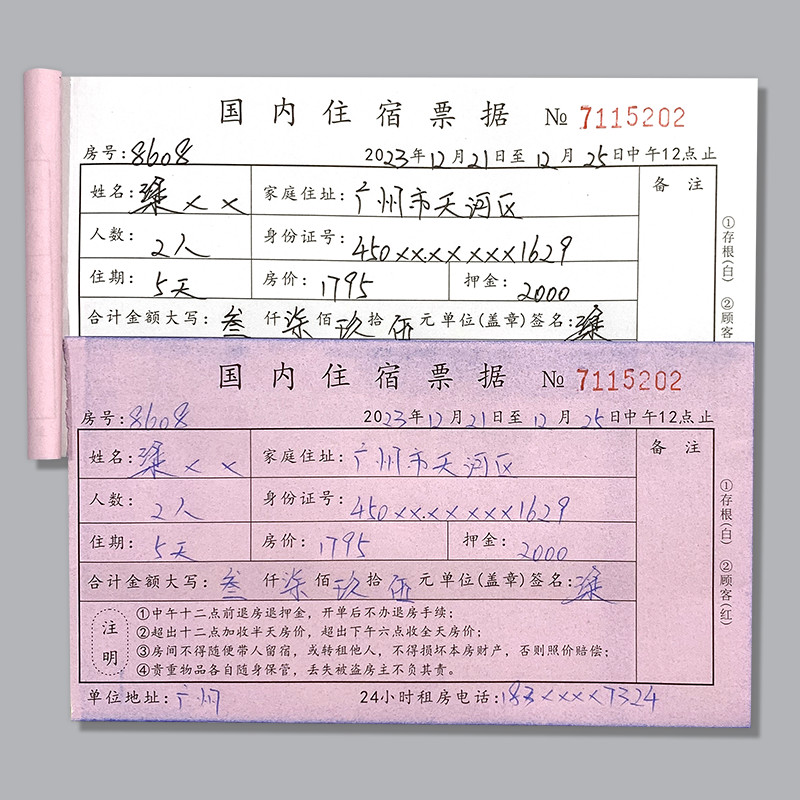 国内住宿票据 № 7115202
房号:8608 2023年12月21日至12月25日中午12点止
姓名:梁×× 家庭住址:广州市天河区 备注
人数:2人 身份证号:450××.××××1629
住期:5天 房价:1795 押金:2000
合计金额大写:叁仟柒佰玖拾伍元 单位(盖章)签名:梁
①存根(白) ②顾客
国内住宿票据 № 7115202
房号:8608 2023年12月21日至12月25日中午12点止
姓名:梁×× 家庭住址:广州市天河区 备注
人数:2人 身份证号:450××.××××1629
住期:5天 房价:1795 押金:2000
合计金额大写:叁仟柒佰玖拾伍元 单位(盖章)签名:梁
注明
①中午十二点前退房退押金，开单后不办退房手续;
②超出十二点加收半天房价，超出下午六点收全天房价;
③房间不得随便带人留宿，或转租他人，不得损坏本房财产，否则照价赔偿;
④贵重物品各自随身保管，丢失被盗房主不负其责。
单位地址:广州 24小时租房电话:183××××7324
①存根(白) ②顾客(红)